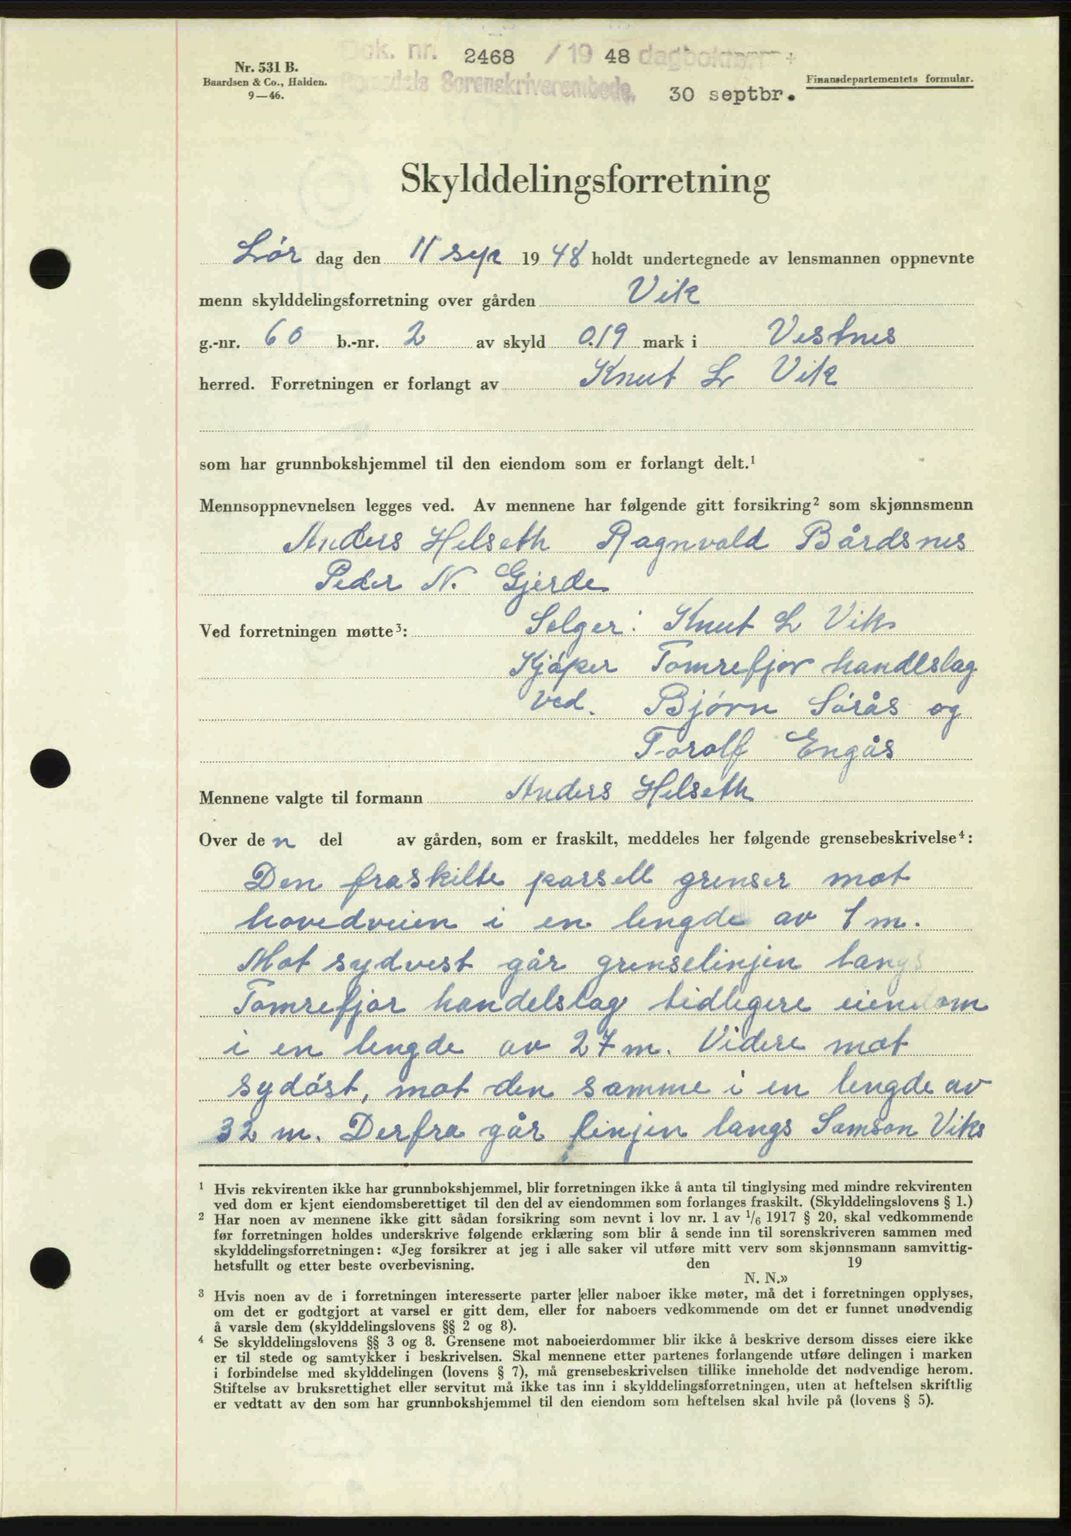 Nr. 531 B.
Baardsen & Co., Halden.
9—46.
Dok. nr. 2468 / 19 48 dagboknr.
Sorenskriverembede.
30 septbr.
Finansdepartementets formular.
Skylddelingsforretning
Lør dag den 11 sep 19 48 holdt undertegnede av lensmannen oppnevnte
menn skylddelingsforretning over gården Vik
g.-nr. 60 b.-nr. 2 av skyld 0.19 mark i Vestnes
herred. Forretningen er forlangt av Knut L Vik
som har grunnbokshjemmel til den eiendom som er forlangt delt.¹
Mennsoppnevnelsen legges ved. Av mennene har følgende gitt forsikring² som skjønnsmenn
Anders Helseth Ragnvald Bårdsnes
Peder N. Gjerde
Ved forretningen møtte³: Selger: Knut L Vik
Kjøper Tomrefjor handelslag
ved. Bjørn Sørås og
Torolf Engås
Mennene valgte til formann Anders Helseth
Over den del av gården, som er fraskilt, meddeles her følgende grensebeskrivelse⁴:
Den fraskilte parsell grenser mot
hovedveien i en lengde av 1 m.
Mot sydvest går grenselinjen langs
Tomrefjor handelslag tidligere eiendom
i en lengde av 27 m. Videre mot
sydøst, mot den samme i en lengde av
32 m. Derfra går linjen langs Samson Viks
¹ Hvis rekvirenten ikke har grunnbokshjemmel, blir forretningen ikke å anta til tinglysing med mindre rekvirenten
ved dom er kjent eiendomsberettiget til den del av eiendommen som forlanges fraskilt. (Skylddelingslovens § 1.)
² Har noen av mennene ikke gitt sådan forsikring som nevnt i lov nr. 1 av 1/6 1917 § 20, skal vedkommende
før forretningen holdes underskrive følgende erklæring som blir å sende inn til sorenskriveren sammen med
skylddelingsforretningen: «Jeg forsikrer at jeg i alle saker vil utføre mitt verv som skjønnsmann samvittig-
hetsfullt og etter beste overbevisning. den 19
N. N.»
³ Hvis noen av de i forretningen interesserte parter eller naboer ikke møter, må det i forretningen opplyses,
om det er godtgjort at varsel er gitt dem, eller for naboers vedkommende om det er funnet unødvendig
å varsle dem (skylddelingslovens §§ 2 og 8).
⁴ Se skylddelingslovens §§ 3 og 8. Grensene mot naboeierdommer blir ikke å beskrive dersom disses eiere ikke
er til stede og samtykker i beskrivelsen. Skal mennene etter partenes forlangende utføre delingen i marken
i forbindelse med skylddelingen (lovens § 7), må grensebeskrivelsen tillike inneholde det nødvendige herom.
Stiftelse av bruksrettighet eller servitut må ikke tas inn i skylddelingsforretningen, uten at heftelsen skriftlig
er vedtatt av den som har grunnbokshjemmel til den eiendom som heftelsen skal hvile på (lovens § 5).